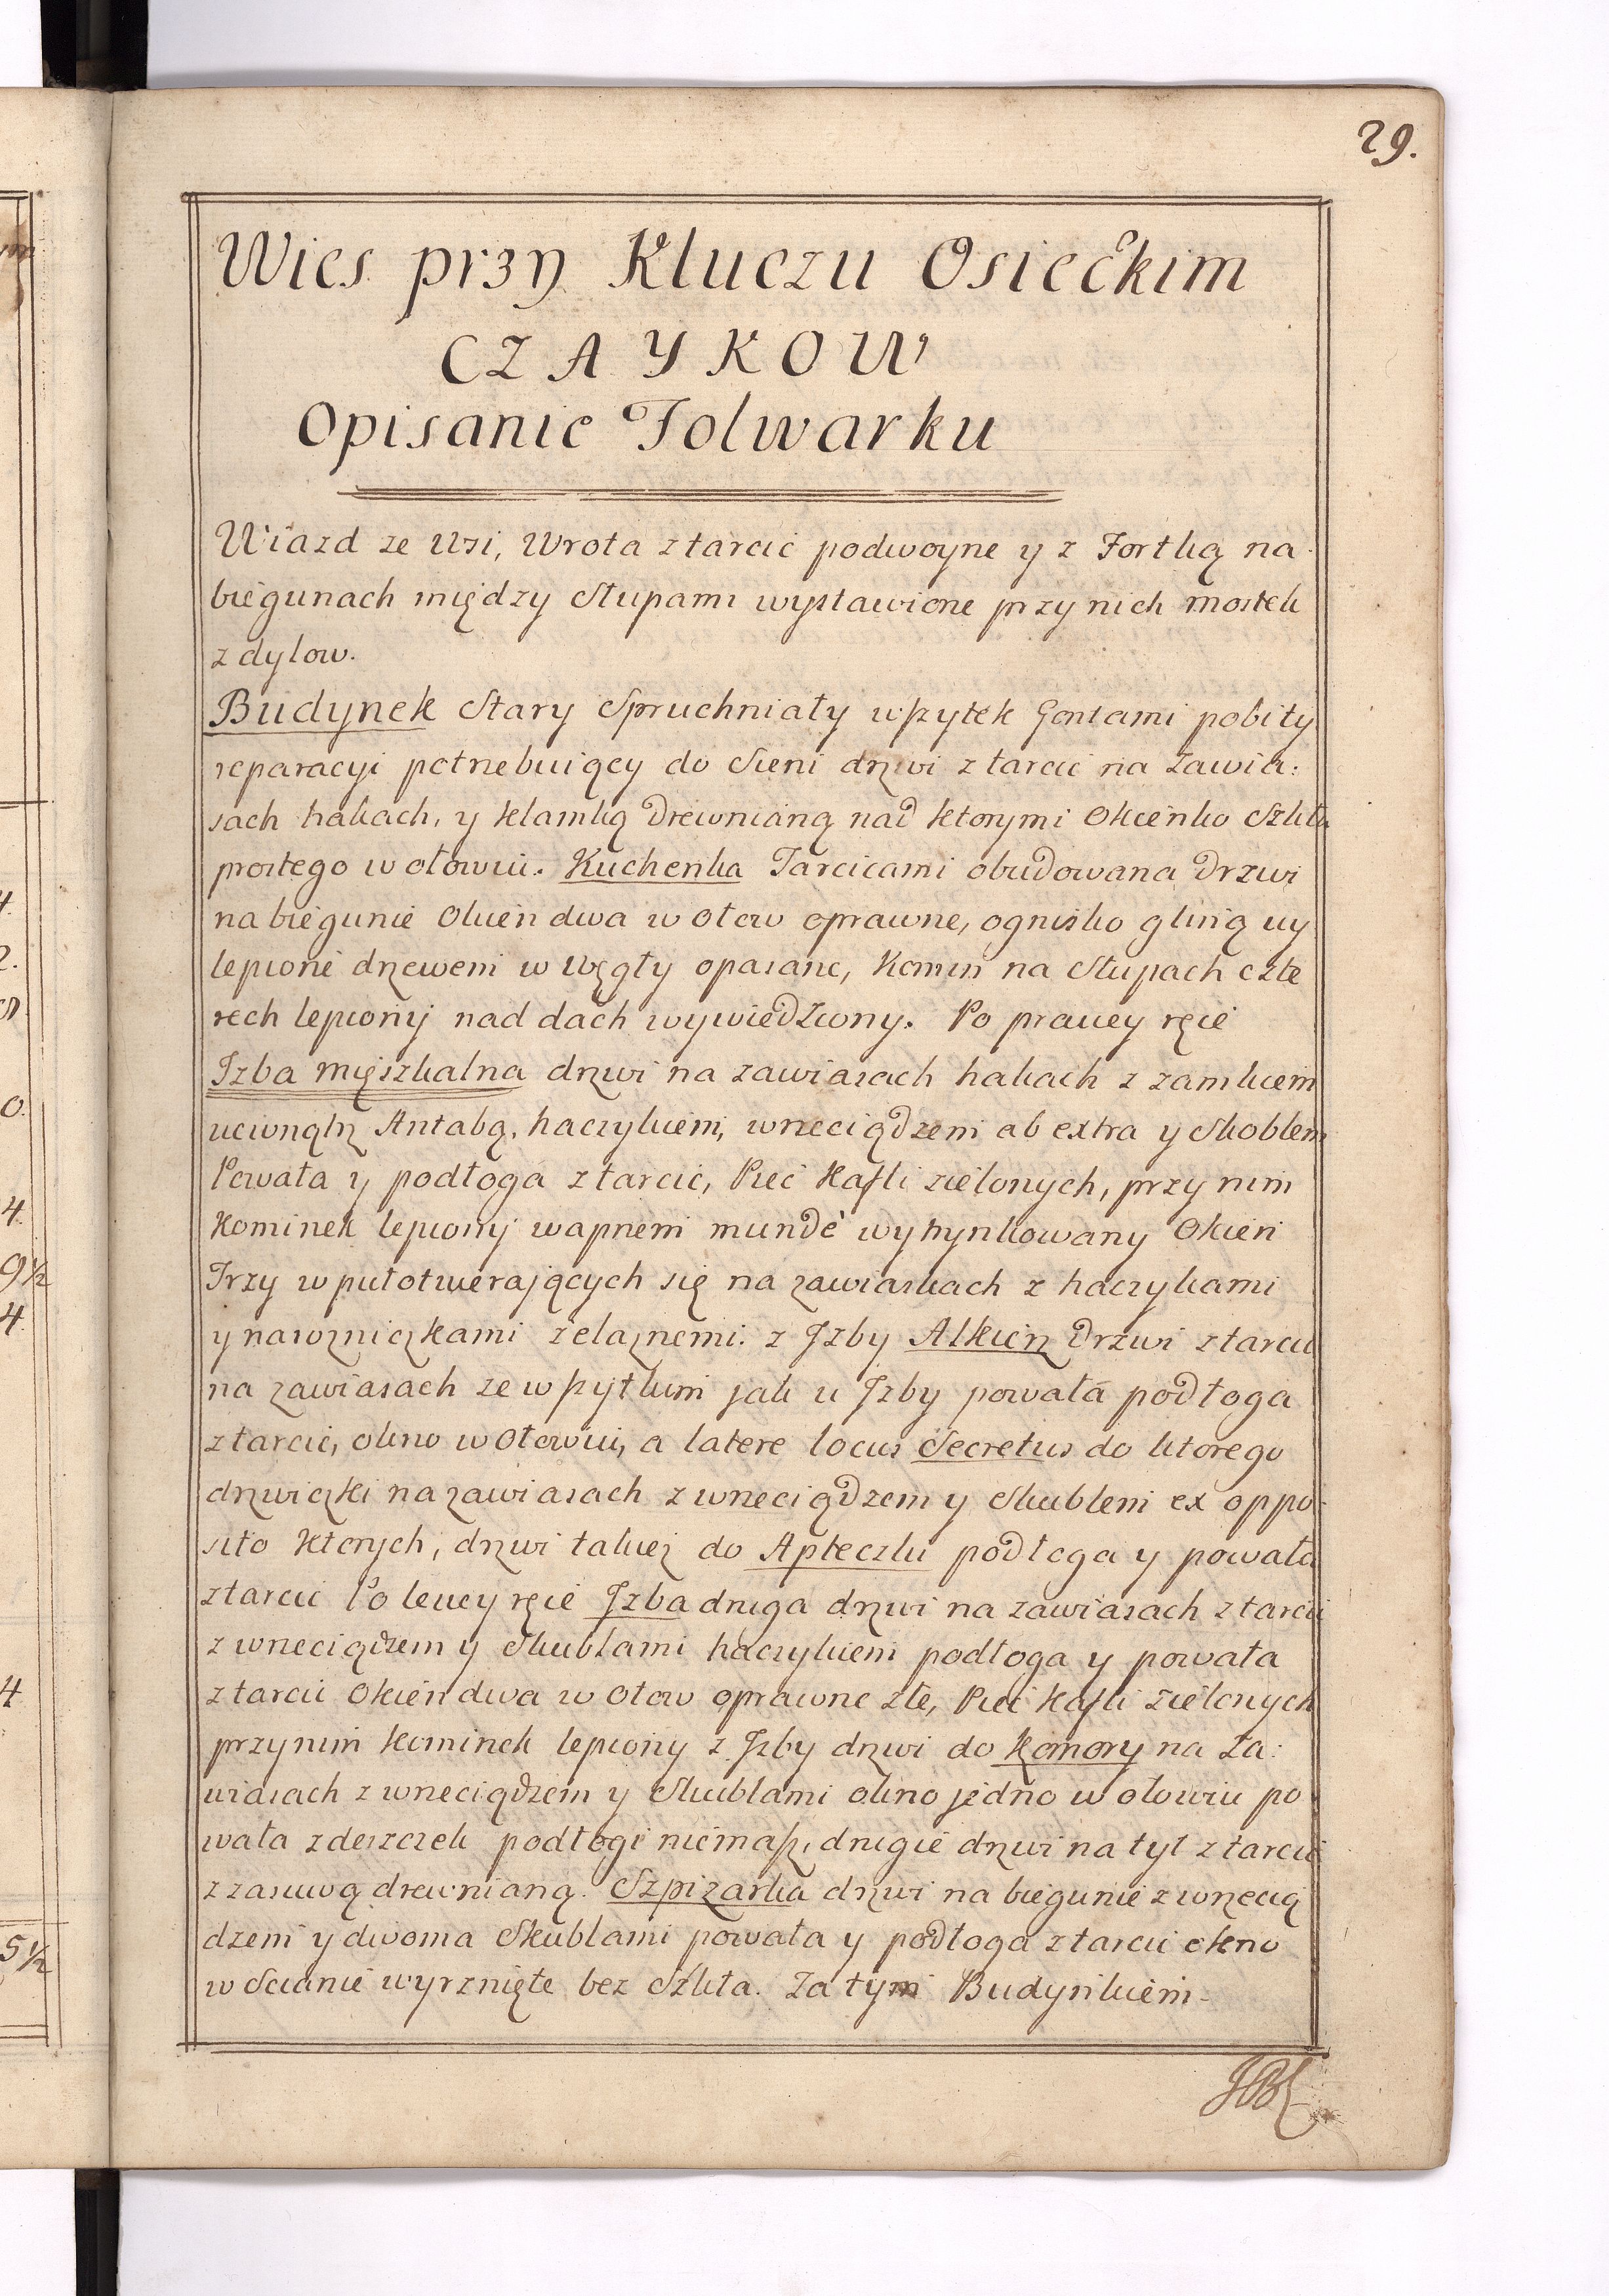 29.
Wies przy Kluczu Osieckim
CZAYKOW
Opisanie Folwarku
Wiazd ze Wsi, Wrota z tarcic podwoyne y z Fortką na
biegunach między Słupami wystawione przy nich mostek
z dylow.
Budynek Stary Spruchniały wszytek Gontami pobity
reparacyi potrzebuiący do Sieni drzwi z tarcic na Zawia:
sach hakach, y klamką Drewnianą nad ktorymi Okienko Szkła
prostego w ołowiu. Kuchenka Tarcicami obudowana Drzwi
na biegunie Okien dwa w Ołow oprawne, ognisko gliną wy
lepione drzewem w Węgły opasane, Komin na Słupach czte
rech lepiony nad dach wywiedziony. Po prawey ręce
Izba mięszkalna drzwi na zawiasach hakach z zamkiem
wewnątrz Antabą, haczykiem, wrzeciądzem ab extra y Skoblem
Powała y podłoga z tarcic, Piec Kafli zielonych, przy nim
Kominek lepiony wapnem mundè wyrynkowany Okien
Trzy w puł otwierających się na zawiaskach z haczykami
y nawzniczkami żelaznemi. z Izby Alkierz Drzwi z tarcic
na zawiasach ze wszytkim jak u Izby powała podłoga
z tarcic, okno w Ołowiu, a latere locus Secretus do ktorego
drzwiczki na zawiasach z wrzeciądzem y Skublem ex oppo:
sito ktorych, drzwi takież do Apteczki podłoga y powała
z tarcic Po lewey ręce Izba druga drzwi na zawiasach z tarcic
z wrzeciądzem y Skublami haczykiem podłoga y powała
z tarcic Okien dwa w Ołow oprawne złe, Piec Kafli zielonych
przy nim Kominek lepiony z Izby drzwi do Komory na Za:
wiasach z wrzeciądzem y Skublami okno jedno w ołowiu po
wała z deszczek podłogi niemasz, drugie drzwi na tył z tarcic
z zasuwą drewnianą. Szpizarka drzwi na biegunie z wrzecią
dzem y dwoma Skublami powała y podłoga z tarcic okno
w Scianie wyrznięte bez Szkła. Za tym Budynkiem